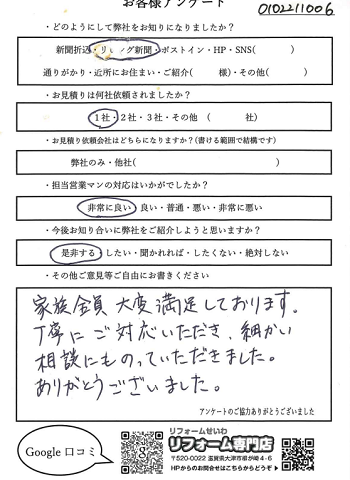 お客様アンケート
0102211006
・どのようにして弊社をお知りになりましたか?
新聞折込・リビング新聞・ポストイン・HP・SNS( )
通りがかり・近所にお住まい・ご紹介( 様)・その他( )
・お見積りは何社依頼されましたか?
1社・2社・3社・その他 ( 社)
・お見積り依頼会社はどちらになりますか?(書ける範囲で結構です)
弊社のみ・他社( )
・担当営業マンの対応はいかがでしたか?
非常に良い・良い・普通・悪い・非常に悪い
・今後お知り合いに弊社をご紹介しようと思いますか?
是非する・したい・聞かれれば・したくない・絶対しない
・その他ご意見等ご自由にお書きください
家族全員 大変満足しております。
丁寧に ご対応いただき、細かい
相談にものっていただきました。
ありがとうございました。
アンケートのご協力ありがとうございました
Google 口コミ
リフォームせいわ
リフォーム専門店
〒520-0022 滋賀県大津市柳が崎4-6
HPからのお問合せはこちらからどうぞ